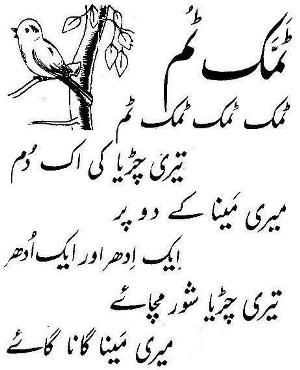 ٹَمَّک ٹُم
ٹمک ٹمک ٹمک ٹم
تیری چڑیا کی اک دُم
میری مَینا کے دو پر
اِیک اِدھر اور ایک اُدھر
تیری چڑیا شور مچائے
میری مَینا گانا گائے